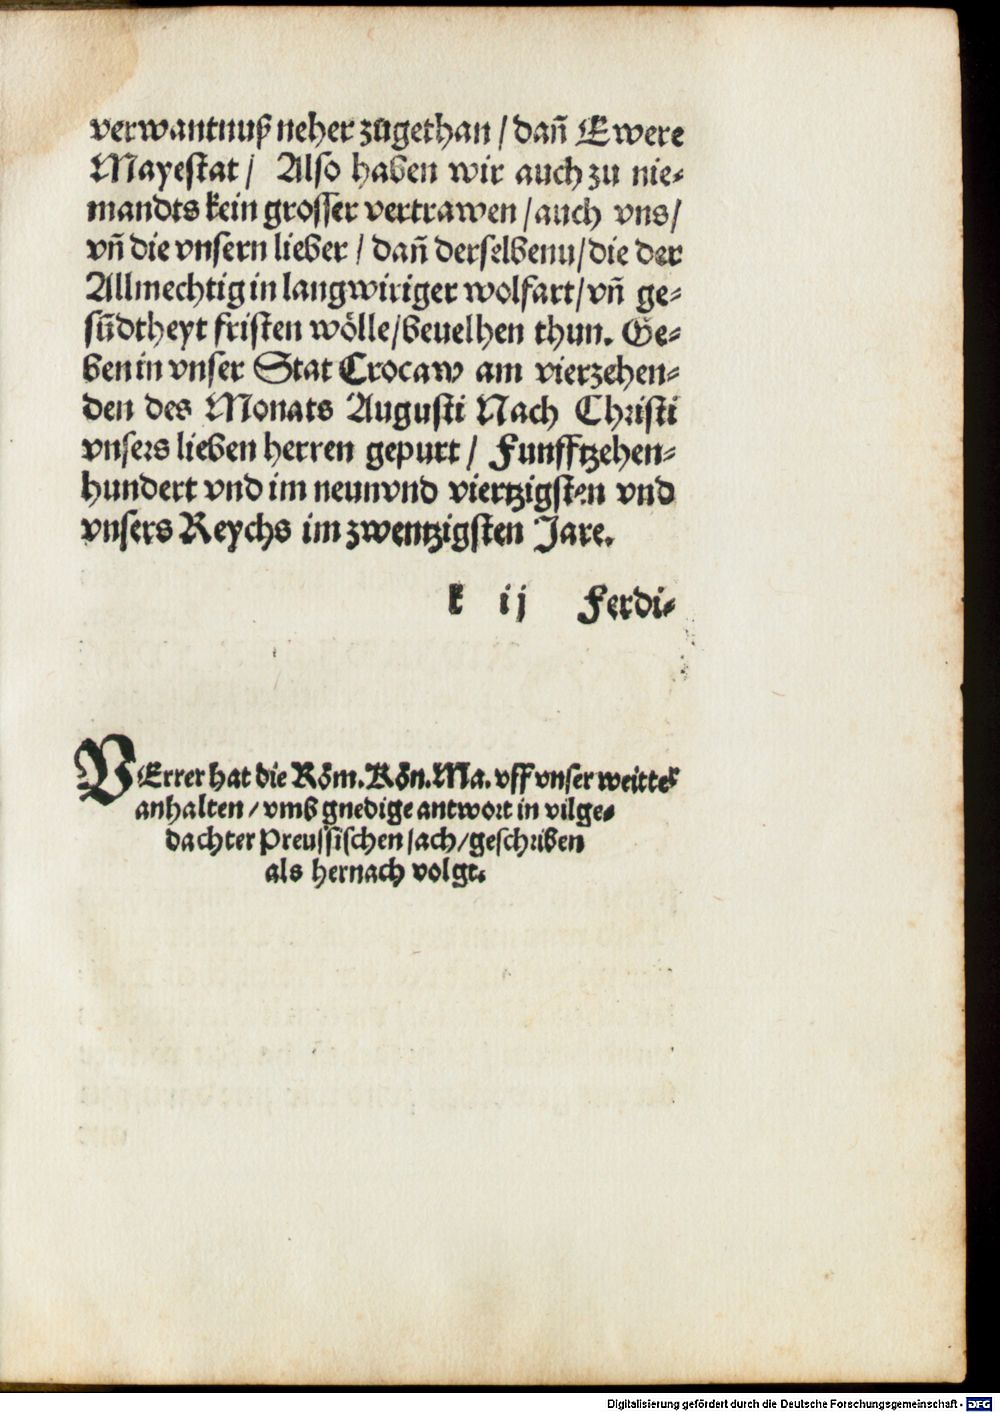 verwantnuß neher zůgethan / dañ Ewere
Mayestat / Also haben wir auch zu nie⸗
mandts kein grosser vertrawen / auch vns /
vñ die vnsern lieber / dañ derselbenn / die der
Allmechtig in langwiriger wolfart / vñ ge⸗
sũdtheyt fristen wölle / beuelhen thun. Ge⸗
ben in vnser Stat Crocaw am vierzehen⸗
den des Monats Augusti Nach Christi
vnsers lieben herren gepurt / Funfftzehen⸗
hundert vnd im neunvnd viertzigsten vnd
vnsers Reychs im zwentzigsten Jare.
k ij Ferdi⸗
VErrer hat die Röm. Kön. Ma. vff vnser weitter
anhalten / vmb gnedige antwort in vilge⸗
dachter Preussischen sach / geschriben
als hernach volgt.
Digitalisierung gefördert durch die Deutsche Forschungsgemeinschaft - DFG